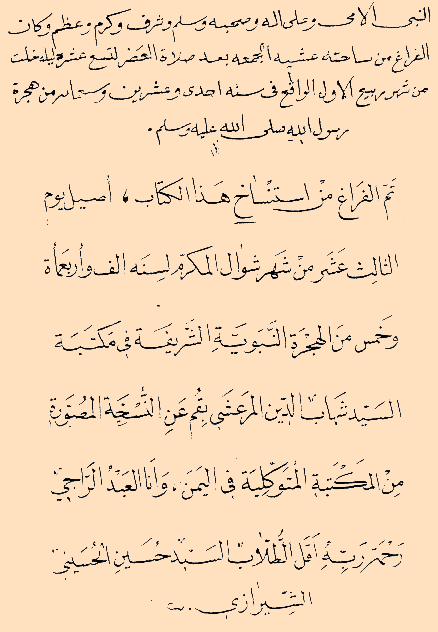 النبى الامى وعلى اله وصحبه وسلم وشرف وكرم وعظم وكان
الفراغ من ساحته عشيه الجمعه بعد صلاة العصر لتسع عشرة ليله خلت
من شهر ربيع الاول الواقع فى سنه احدى وعشرين وستمائه من هجرة
رسول الله صلى الله عليه وسلم .
تَمّ الفَراغ مِنْ استنْسَاخِ هَذا الكتَاب ، أصيل يوم
الثالِث عَشَر منْ شَهَر شوال المكرّم لِسِنَه الف وأربَعمأة
وخَمس منَ الهِجرَة النَّبَويَّةِ الشَّريفَة فى مَكتَبَة
السَيّد شهَابْ الدّين المرعَشى بِقُم عَنِ النُّسْخَةِ المصُوَّرة
مِنْ المَكْتَبةِ المُتَوكِّليَة فى اليمَن . وَانَا العَبْدُ الرّاجي
رَحْمَةَ رَبّهِ اَقَل الطُّلاّب السَيّد حُسَين الحُسَيني
الشّيرازي .